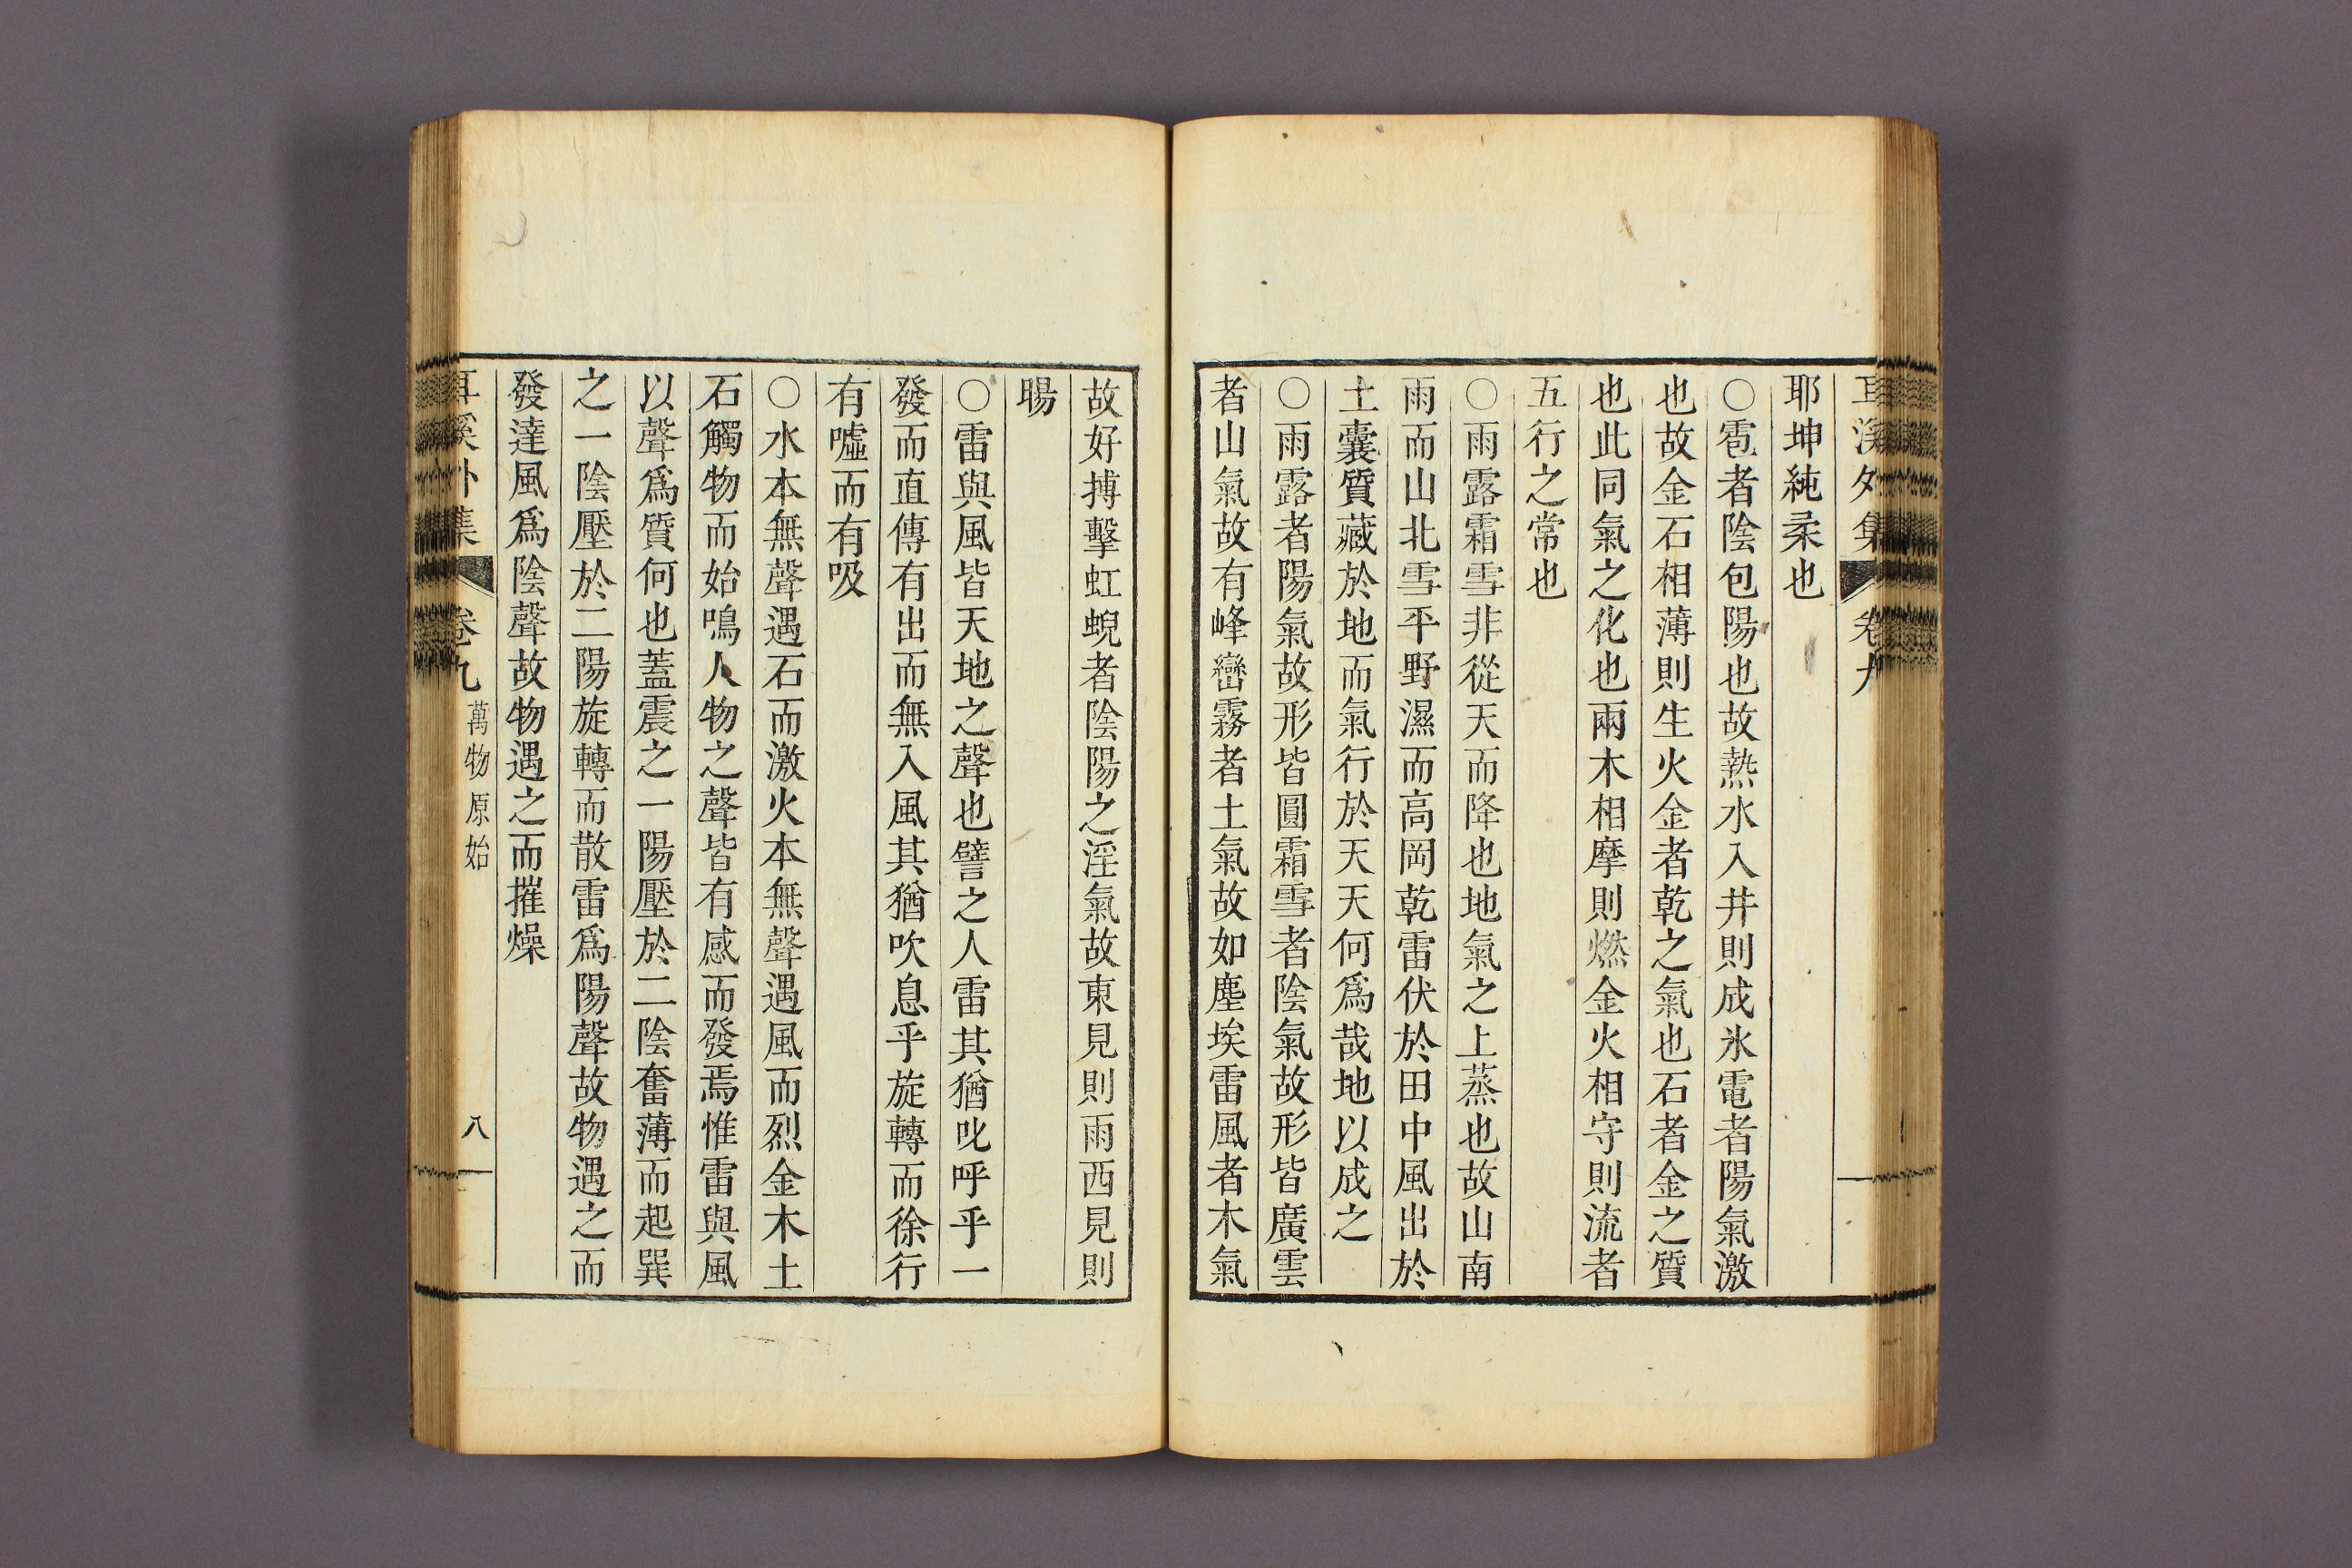 耳溪外集 卷九
耶坤純柔也
○雹者陰包陽也故熱水入井則成氷電者陽氣激
也故金石相薄則生火金者乾之氣也石者金之質
也此同氣之化也兩木相摩則燃金火相守則流者
五行之常也
○雨露霜雪非從天而降也地氣之上蒸也故山南
雨而山北雪平野濕而高岡乾雷伏於田中風出於
土囊質藏於地而氣行於天天何爲哉地以成之
○雨露者陽氣故形皆圓霜雪者陰氣故形皆廣雲
者山氣故有峰巒霧者土氣故如塵埃雷風者木氣
故好搏擊虹蜺者陰陽之淫氣故東見則雨西見則
暘
○雷與風皆天地之聲也譬之人雷其猶叱呼乎一
發而直傳有出而無入風其猶吹息乎旋轉而徐行
有噓而有吸
○水本無聲遇石而激火本無聲遇風而烈金木土
石觸物而始鳴人物之聲皆有感而發焉惟雷與風
以聲爲質何也蓋震之一陽壓於二陰奮薄而起巽
之一陰壓於二陽旋轉而散雷爲陽聲故物遇之而
發達風爲陰聲故物遇之而摧燥
耳溪外集 卷九 萬物原始 八